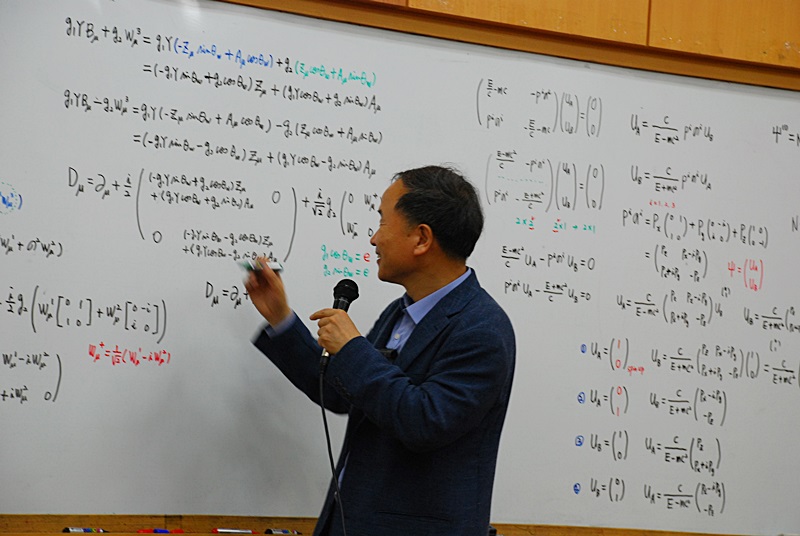 g₁YB_μ + g₂W_μ³ = g₁Y(-Z_μ sinθ_w + A_μ cosθ_w) + g₂(Z_μ cosθ_w + A_μ sinθ_w)
= (-g₁Y sinθ_w + g₂ cosθ_w) Z_μ + (g₁Y cosθ_w + g₂ sinθ_w) A_μ
g₁YB_μ - g₂W_μ³ = g₁Y(-Z_μ sinθ_w + A_μ cosθ_w) - g₂(Z_μ cosθ_w + A_μ sinθ_w)
= (-g₁Y sinθ_w - g₂ cosθ_w) Z_μ + (g₁Y cosθ_w - g₂ sinθ_w) A_μ
D_μ = ∂_μ + i/2 ( (-g₁Y sinθ_w + g₂ cosθ_w) Z_μ + (g₁Y cosθ_w + g₂ sinθ_w) A_μ 0
0 (-g₁Y sinθ_w - g₂ cosθ_w) Z_μ + (g₁Y cosθ_w - g₂ sinθ_w) A_μ ) + i/√2 g₂ ( 0 W_μ⁺
W_μ⁻
g₁ cosθ_w = e
g₂ sinθ_w = e
D_μ = ∂_μ +
i/2 g₂ ( W_μ¹ [0 1 1 0] + W_μ² [0 -i i 0] )
W_μ¹ - iW_μ²
+ iW_μ² 0 )
W_μ⁺ = 1/√2 (W_μ¹ - iW_μ²)
( E/c - mc -pⁱσⁱ
pⁱσⁱ -E/c - mc ) ( U_A U_B ) = ( 0 0 )
( (E-mc²)/c -pⁱσⁱ
pⁱσⁱ -(E+mc²)/c ) ( U_A U_B ) = ( 0 0 )
2×2 2×1 2×1
(E-mc²)/c U_A - pⁱσⁱ U_B = 0
pⁱσⁱ U_A - (E+mc²)/c U_B = 0
U_A = c/(E-mc²) pⁱσⁱ U_B
U_B = c/(E+mc²) pⁱσⁱ U_A
i=1,2,3
pⁱσⁱ = P_x (0 1 1 0) + P_y (0 -i i 0) + P_z (1 0 0 -1)
= ( P_z P_x-iP_y
P_x+iP_y -P_z )
ψ = ( U_A U_B )
U_A = c/(E-mc²) ( P_z P_x-iP_y P_x+iP_y -P_z ) U_B
U_B = c/(E+mc²)
① U_A = (1 0) U_B = c/(E+mc²) ( P_z P_x-iP_y P_x+iP_y -P_z ) (1 0) = c/(E+mc²)
② U_A = (0 1) U_B = c/(E+mc²) ( P_x-iP_y -P_z )
③ U_B = (1 0) U_A = c/(E-mc²) ( P_z P_x+iP_y )
④ U_B = (0 1) U_A = c/(E-mc²) ( P_x-iP_y -P_z )